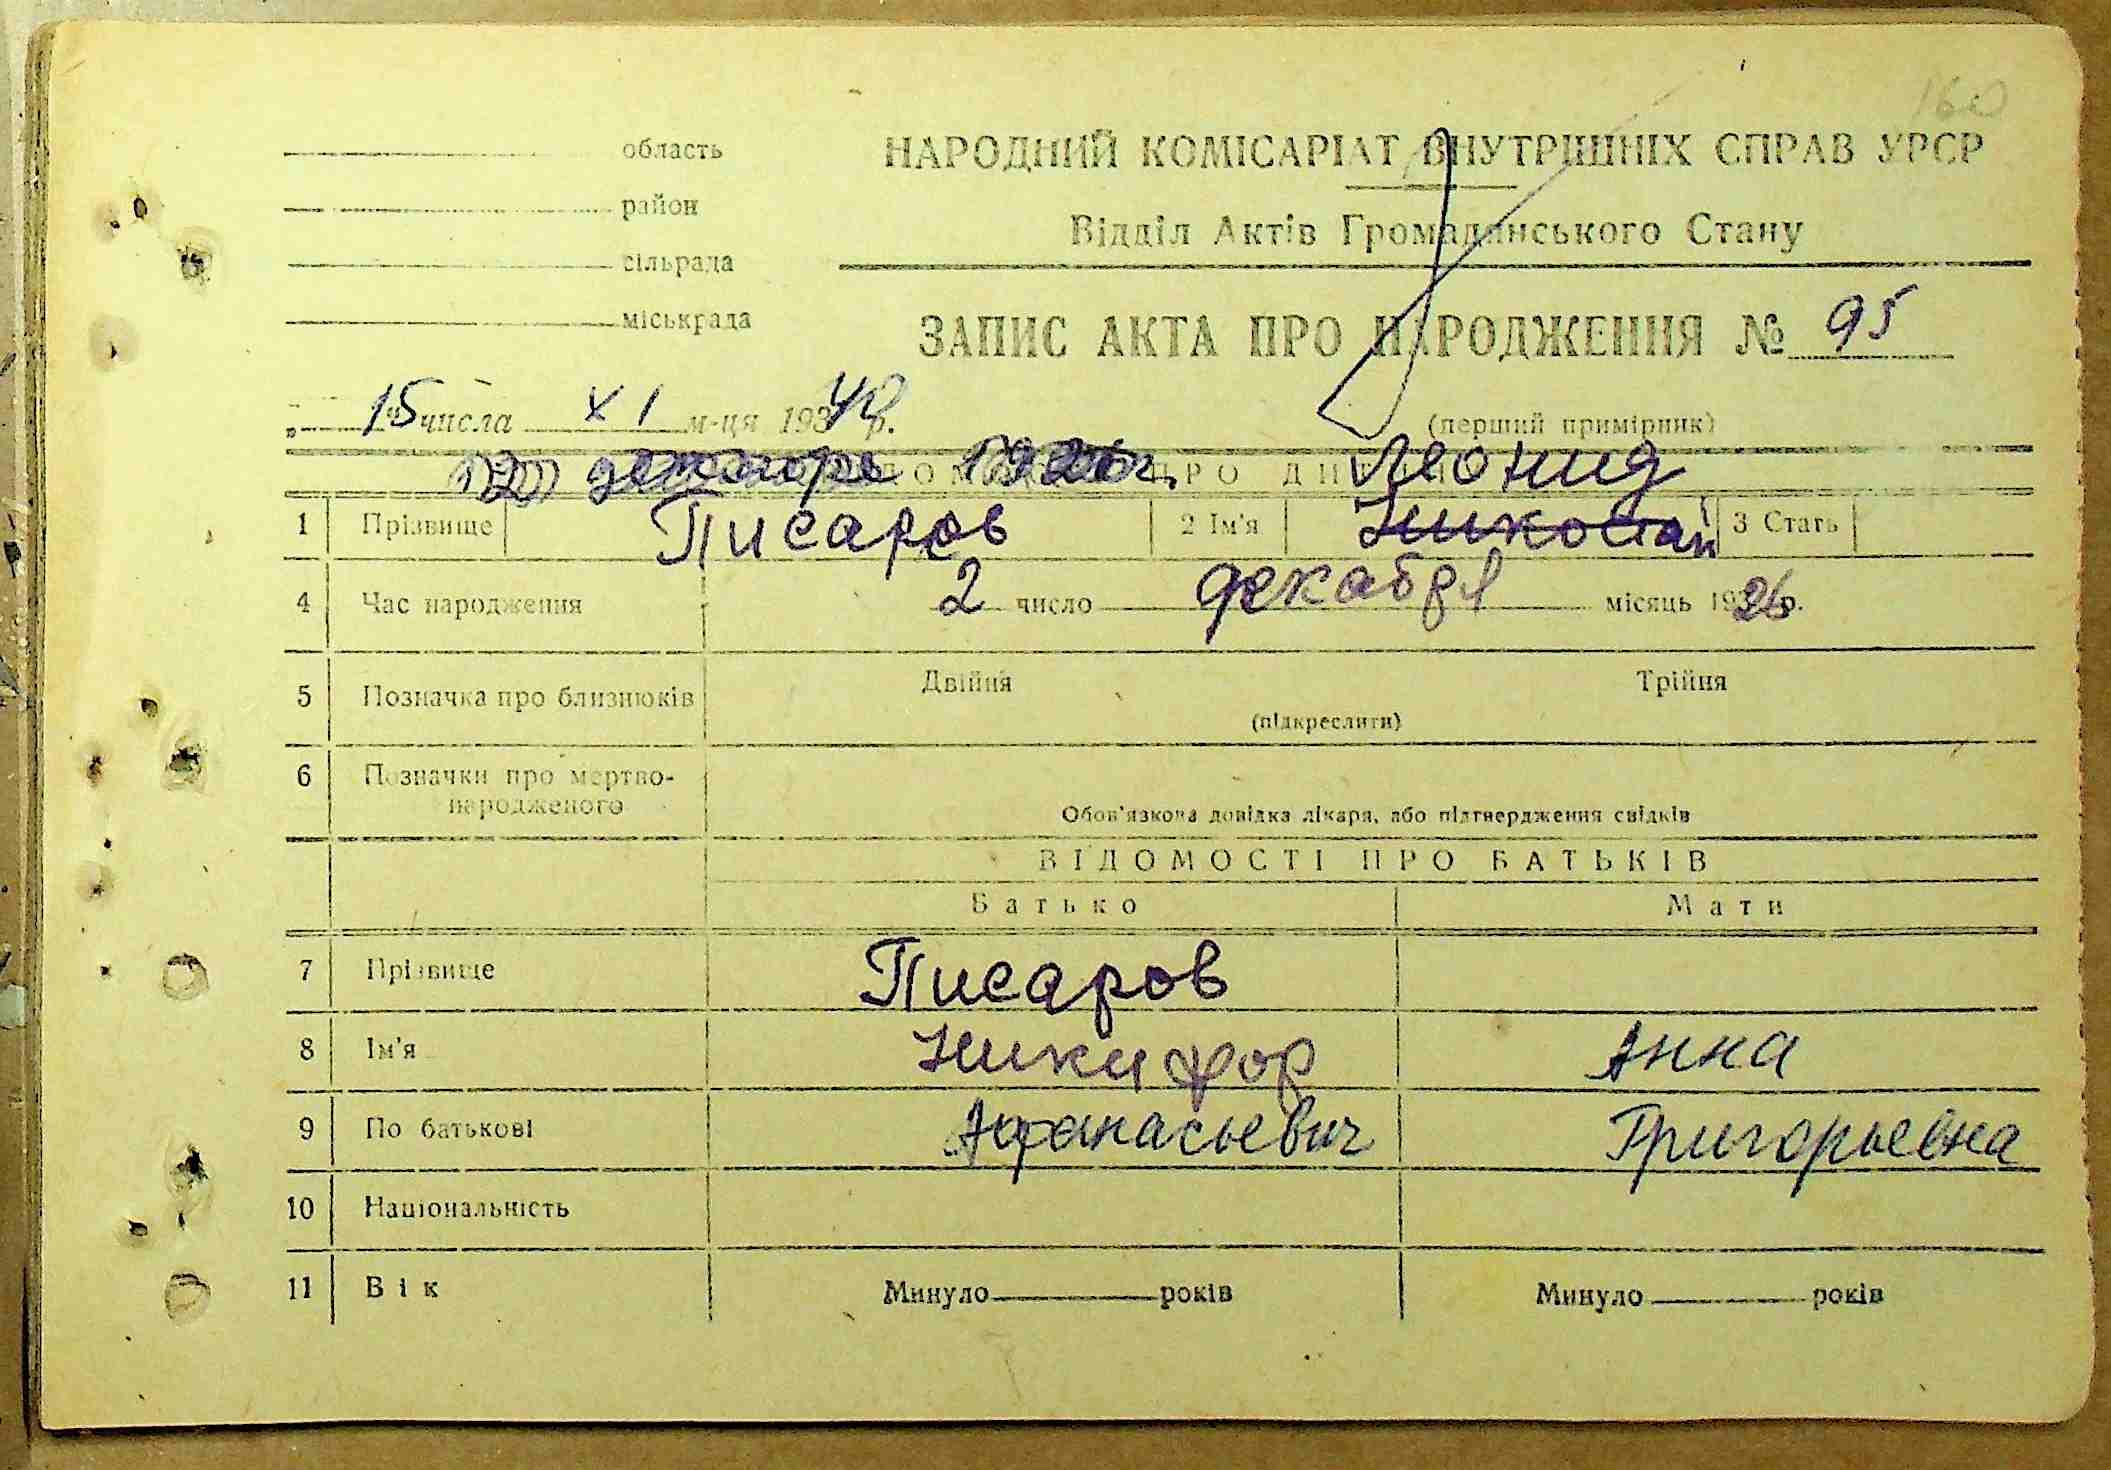 160
область
район
сільрада
міськрада
НАРОДНИЙ КОМІСАРІАТ ВНУТРІШНІХ СПРАВ УРСР
Відділ Актів Громадянського Стану
ЗАПИС АКТА ПРО НАРОДЖЕННЯ № 95
(перший примірник)
"15" числа XI м-ця 193
Леонид
1 Прізвище Писаров 2 Ім'я Николай 3 Стать
4 Час народження 2 число декабря місяць 1926 р.
5 Позначка про близнюків Двійня Трійня
(підкреслити)
6 Позначки про мертво-
народженого
Обов'язкова довідка лікаря, або підтвердження свідків
ВІДОМОСТІ ПРО БАТЬКІВ
Батько Мати
7 Прізвище Писаров
8 Ім'я Никифор Анна
9 По батькові Афанасьевич Григорьевна
10 Національність
11 Вік Минуло років Минуло років